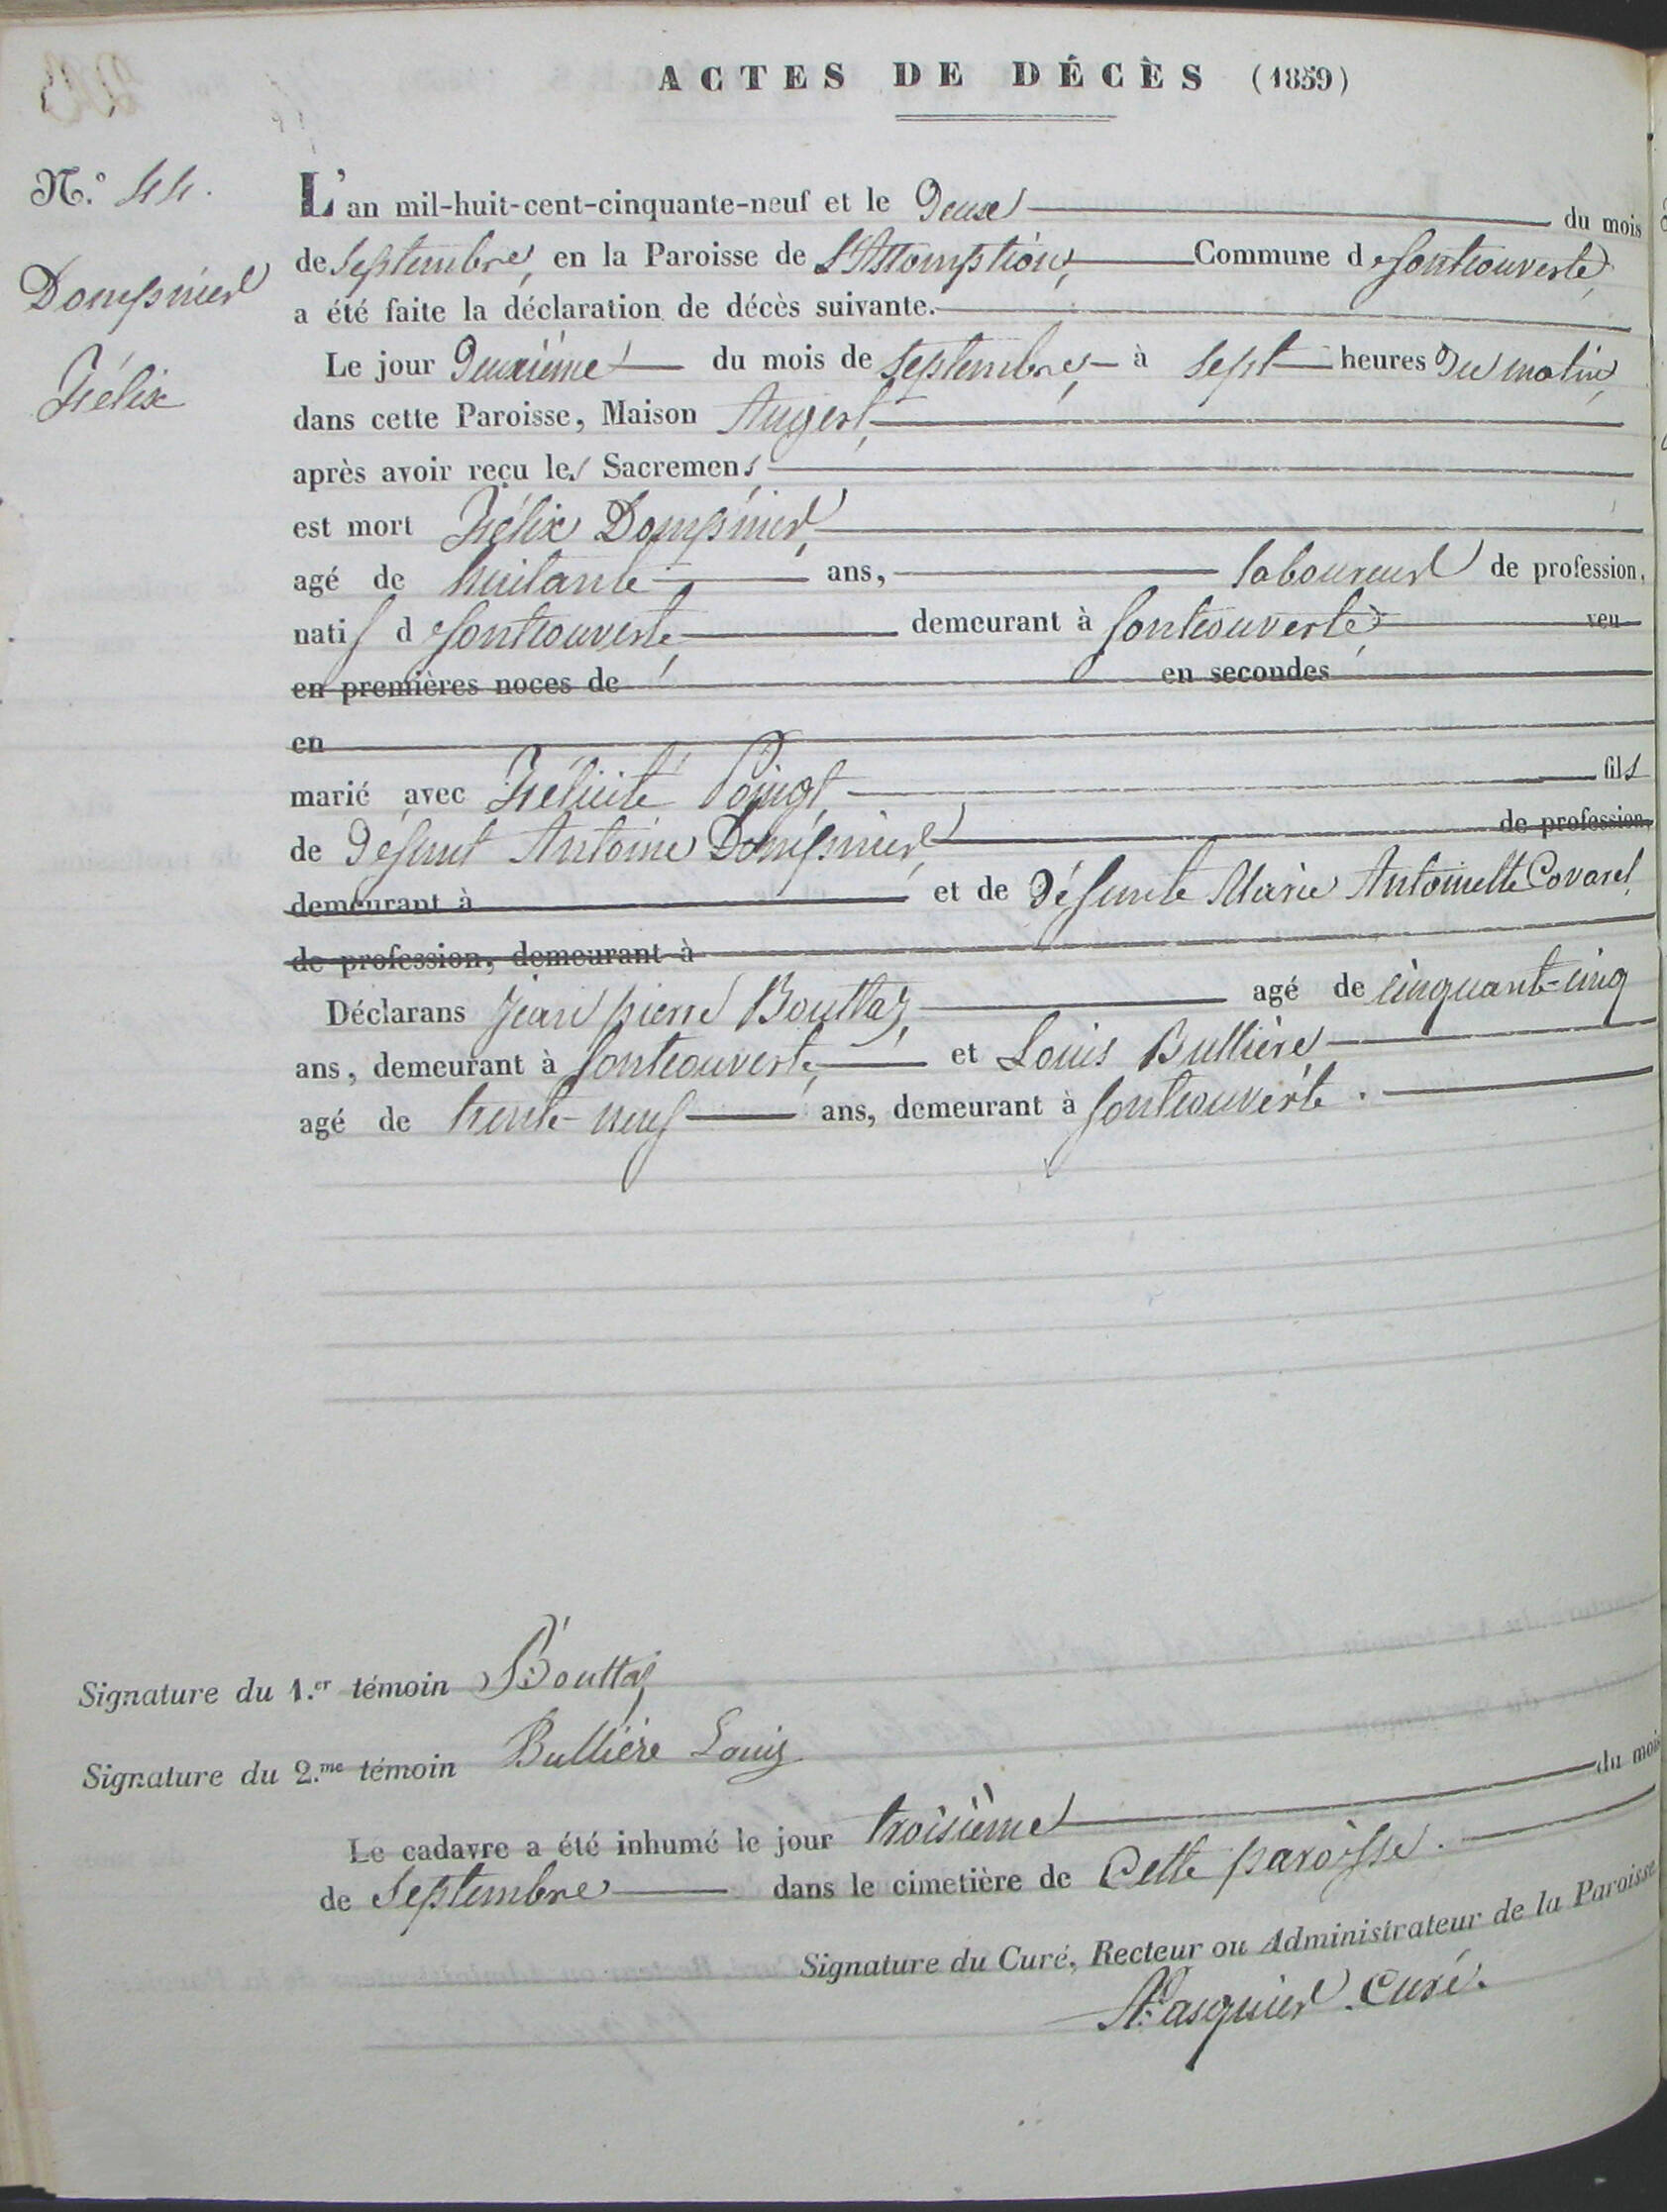 ACTES DE DÉCÈS (1859)
N.º 44.
Dompnier
Félix
L'an mil-huit-cent-cinquante-neuf et le Deux du mois
de Septembre, en la Paroisse de L'Assomption, Commune de fontcouverte,
a été faite la déclaration de décès suivante.
Le jour Deuxième du mois de septembre, à sept heures Du matin,
dans cette Paroisse, Maison Augert,
après avoir reçu les Sacremens,
est mort Félix Dompnier,
agé de huitante ans, laboureur de profession,
natif de fontcouverte, demeurant à fontcouverte, veu
en premières noces de en secondes
en
marié avec Félicité Poingt, fils
de Défunt Antoine Dompnier, de profession,
demeurant à et de Défunte Marie Antoinette Covarel,
de profession, demeurant à
Déclarans Jean pierre Bouttaz, agé de cinquante-cinq
ans, demeurant à fontcouverte, et Louis Bullière
agé de trente-neuf ans, demeurant à fontcouverte.
Signature du 1.er témoin Bouttaz
Signature du 2.me témoin Bullière Louis
Le cadavre a été inhumé le jour troisième du mois
de Septembre dans le cimetière de Cette paroisse.
Signature du Curé, Recteur ou Administrateur de la Paroisse
Pasquier Curé.